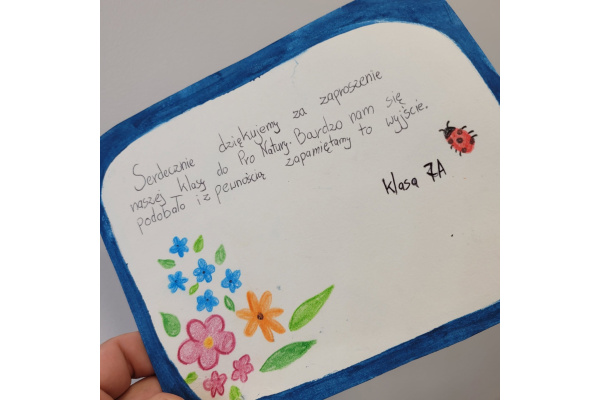 Serdecznie dziękujemy za zaproszenie
naszej klasy do Pro Natury. Bardzo nam się
podobało i z pewnością zapamiętamy to wyjście.
klasa 7A